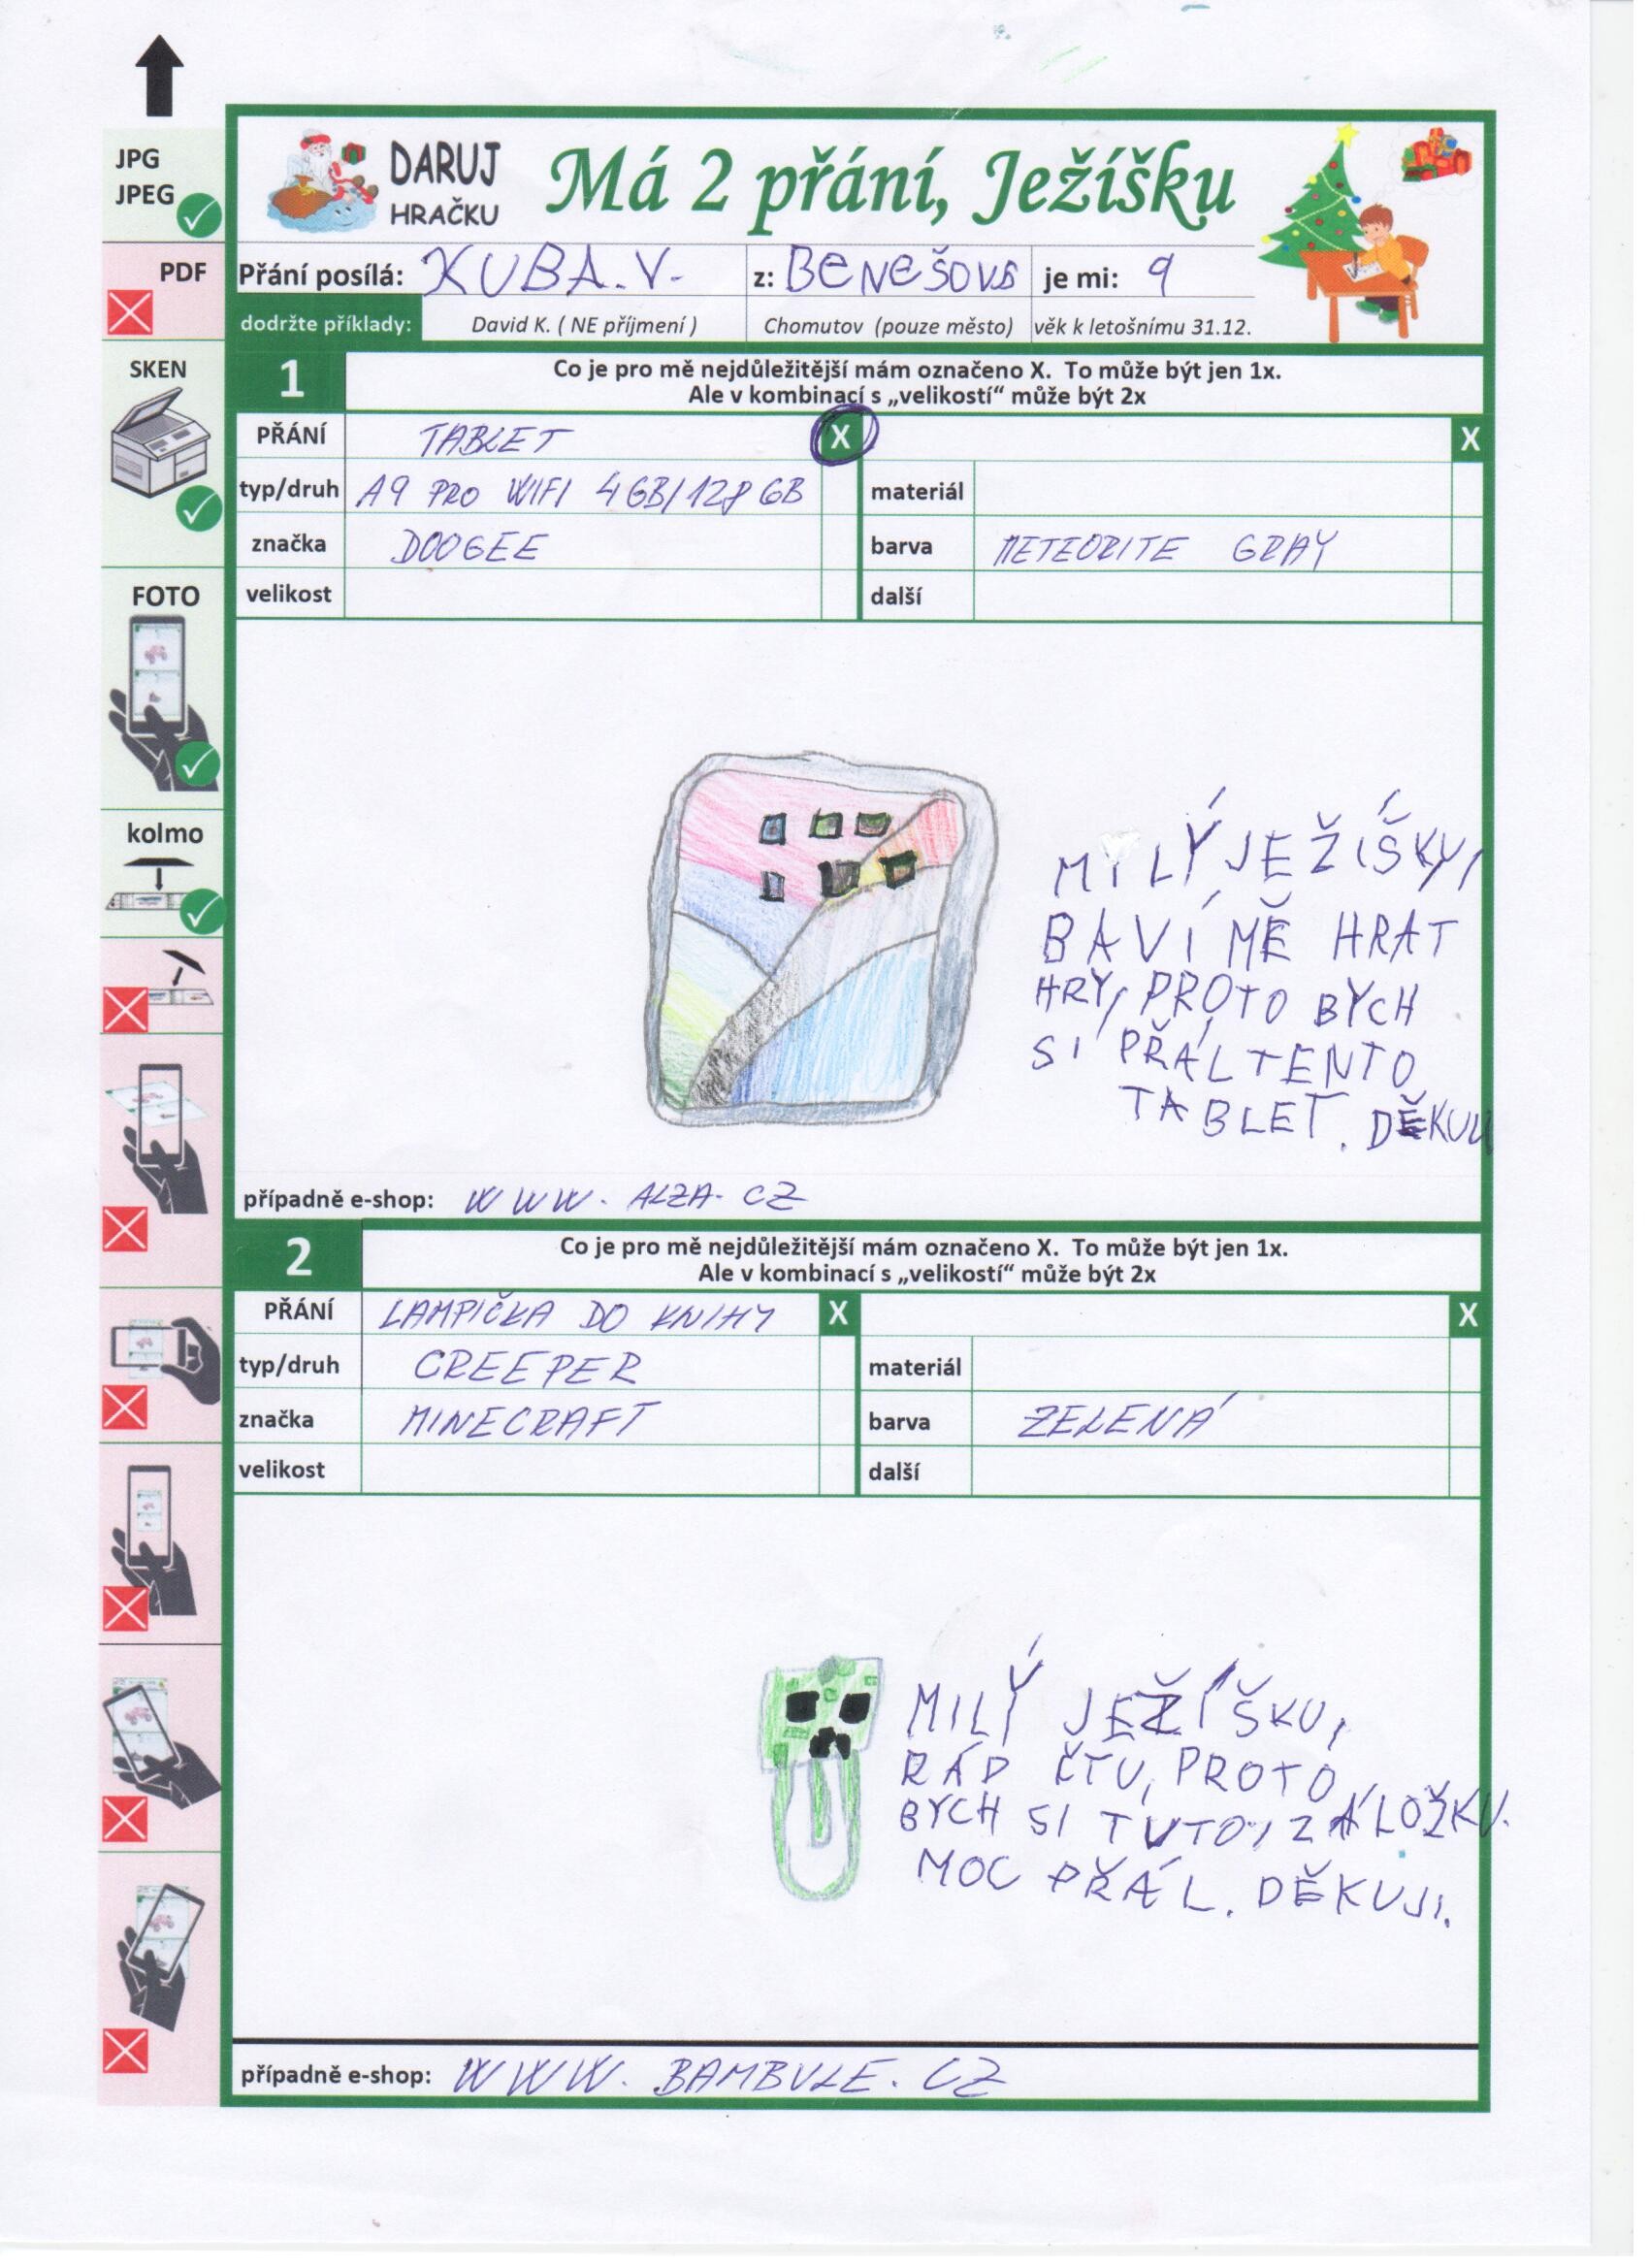 JPG
JPEG
DARUJ
HRAČKU
Má 2 přání, Ježíšku
PDF
Přání posílá: KUBA.V. z: BENEŠOVA je mi: 9
dodržte příklady: David K. ( NE příjmení ) Chomutov (pouze město) věk k letošnímu 31.12.
SKEN
1
Co je pro mě nejdůležitější mám označeno X. To může být jen 1x.
Ale v kombinací s „velikostí“ může být 2x
PŘÁNÍ TABLET X X
typ/druh A9 PRO WIFI 4GB/128GB materiál
značka DOOGEE barva METEORITE GRAY
velikost další
FOTO
kolmo
MILÝ JEŽÍŠKU,
BAVÍ MĚ HRÁT
HRY, PROTO BYCH
SI PŘÁL TENTO
TABLET. DĚKUU
případně e-shop: WWW.ALZA.CZ
2
Co je pro mě nejdůležitější mám označeno X. To může být jen 1x.
Ale v kombinací s „velikostí“ může být 2x
PŘÁNÍ LAMPIČKA DO KNIHY X X
typ/druh CREEPER materiál
značka MINECRAFT barva ZELENÁ
velikost další
MILÝ JEŽÍŠKU,
RÁD ČTU, PROTO
BYCH SI TUTO, ZÁLOŽKU.
MOC PŘÁL. DĚKUJI.
případně e-shop: WWW.BAMBULE.CZ